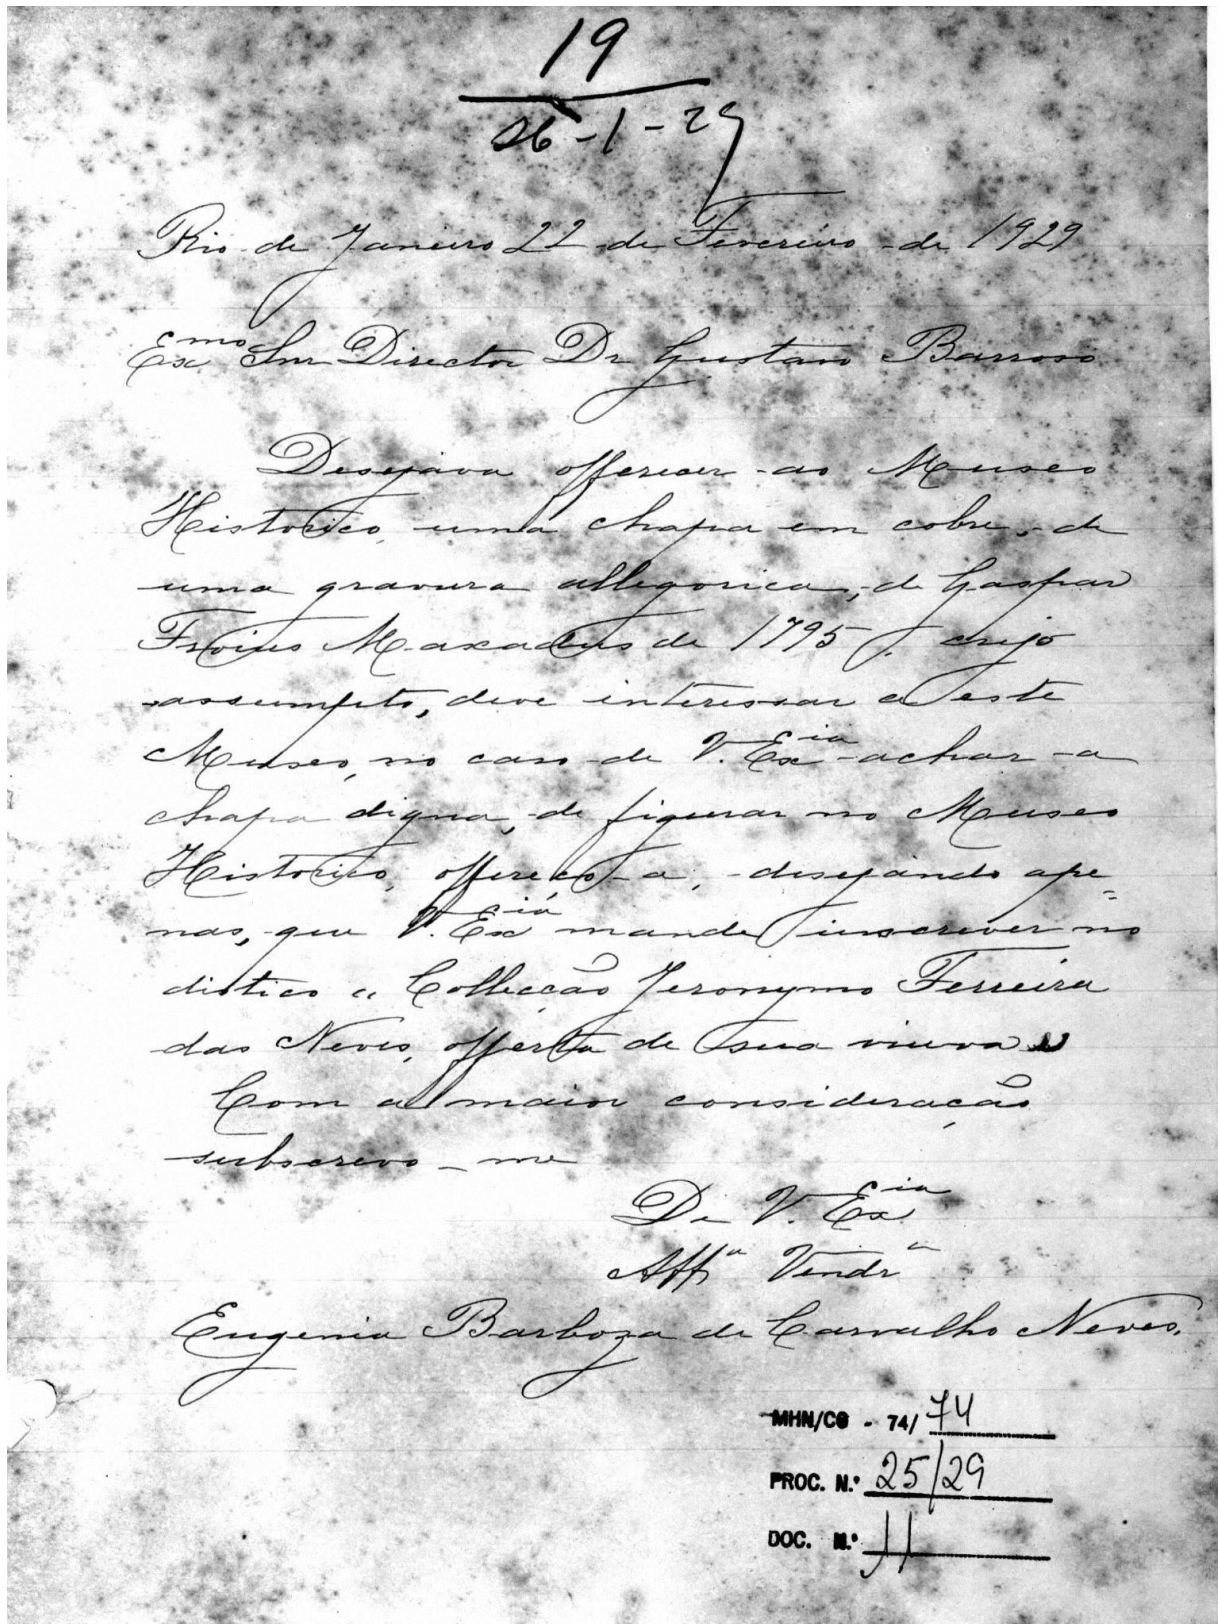 19
26-1-29
Rio de Janeiro 22 de Fevereiro de 1929
Exmo Snr Director Dr Gustavo Barroso
Desejava offerecer ao Museo
Historico, uma chapa em cobre, de
uma gravura allegorica, de Gaspar
Froies Maxadus de 1795, cujo
assumpto, deve interessar a este
Museo, no caso de V. Excia achar a
chapa digna, de figurar no Museo
Historico, offereço-a, desejando ape=
nas, que V. Excia mande inscrever no
distico "Collecção Jeronymo Ferreira
das Neves, offerta de sua viuva"
Com a maior consideração
subscrevo-me
De V. Excia
Atta Vendra
Eugenia Barboza de Carvalho Neves.
MHN/CG - 74/ 74
PROC. N.º 25/29
DOC. N.º 11